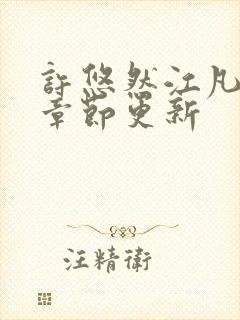 許悠然江凡
章節更新
汪精衛